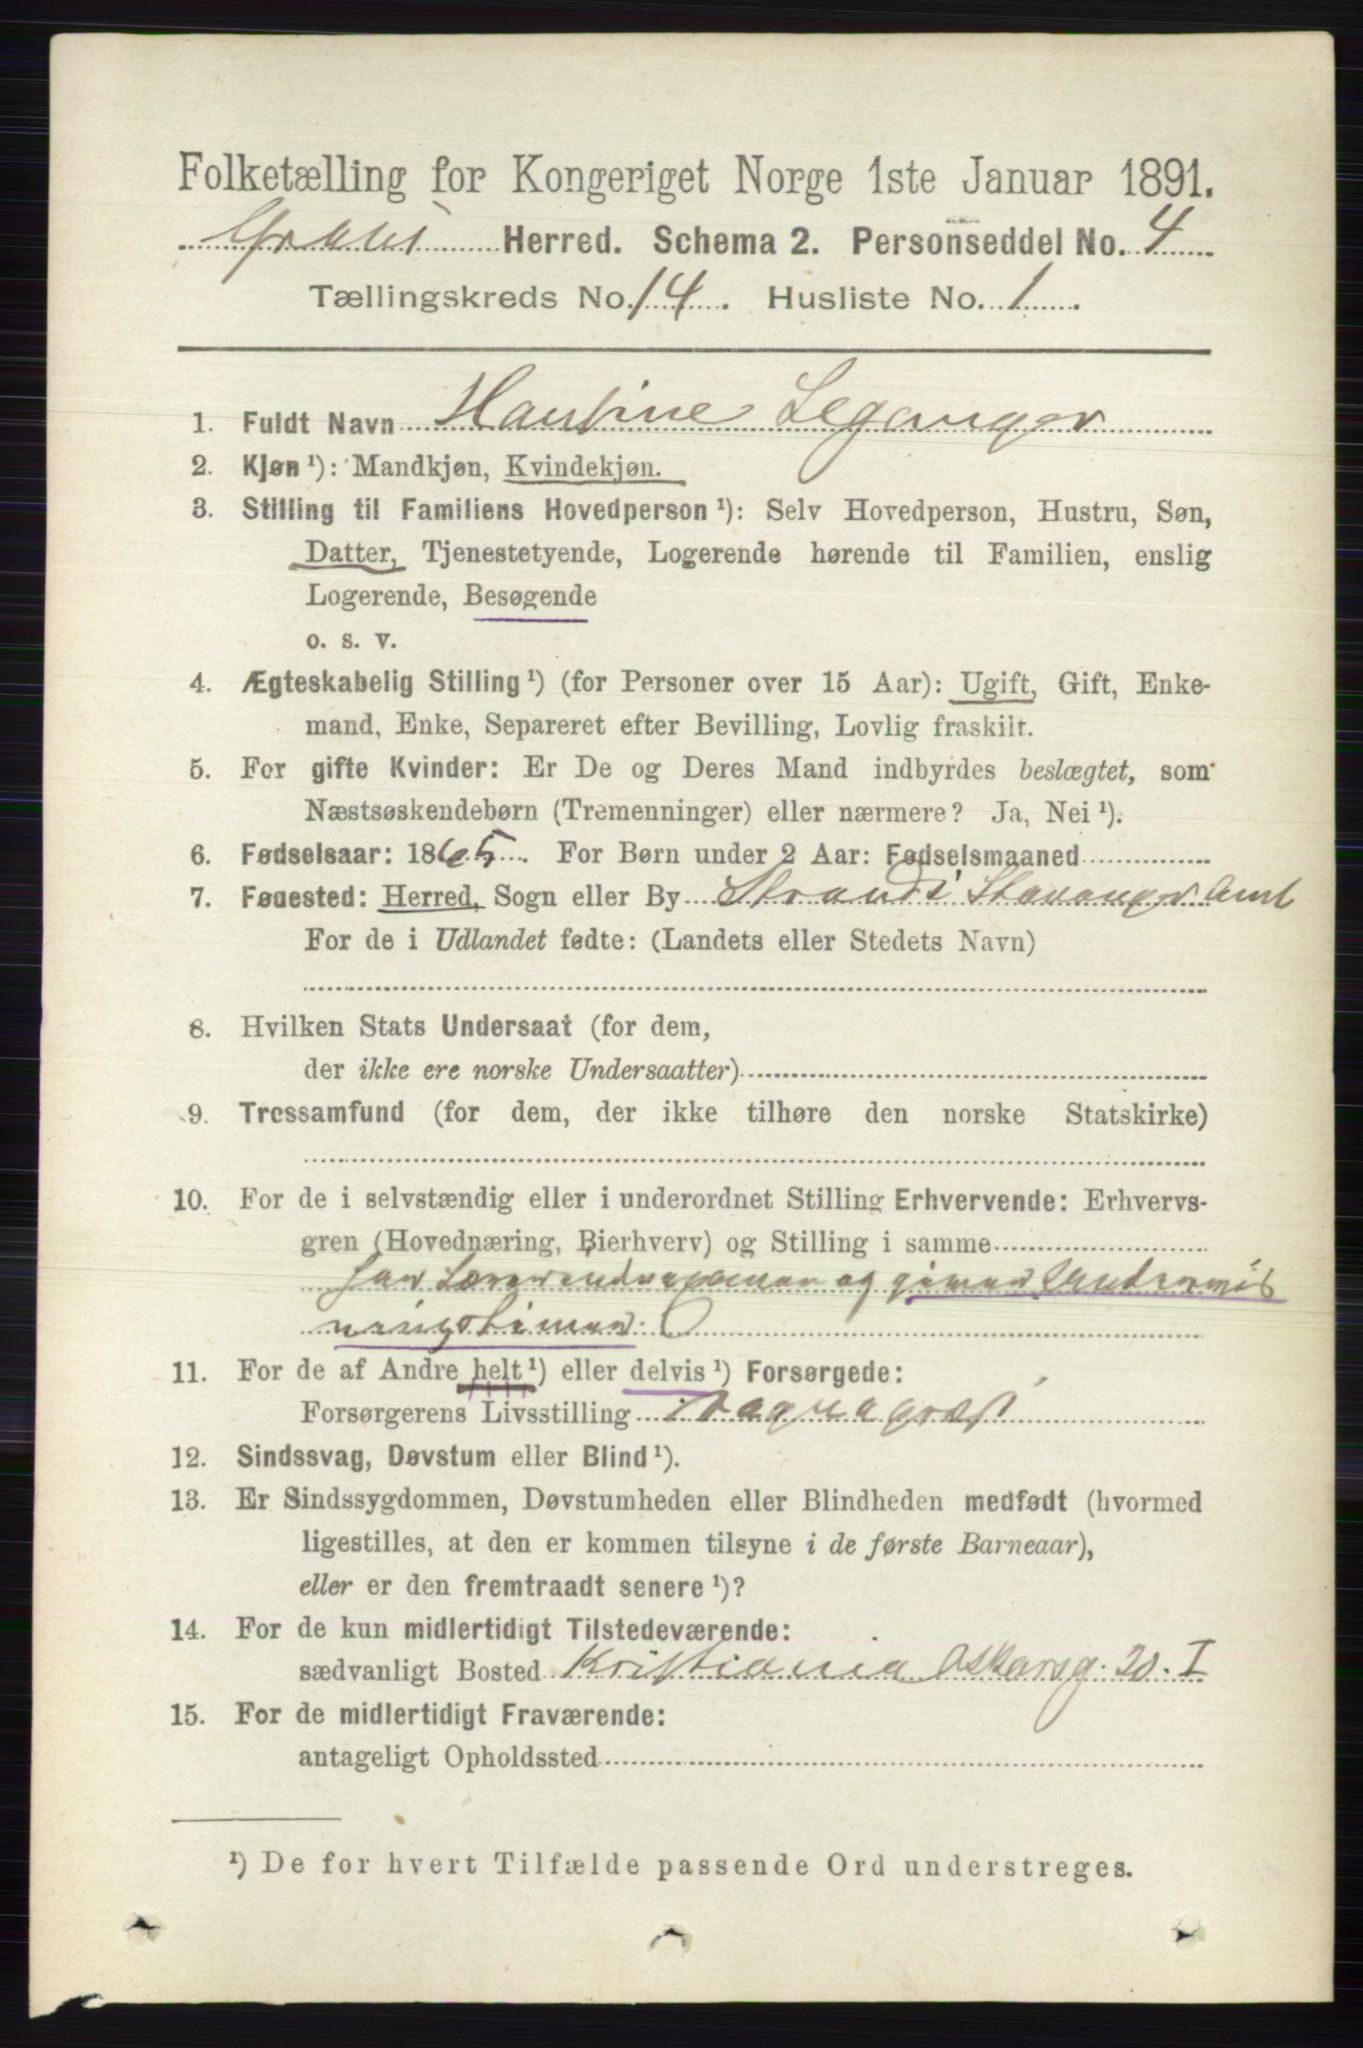 Folketælling for Kongeriget Norge 1ste Januar 1891.
Grans Herred. Schema 2. Personseddel No. 4
Tællingskreds No. 14. Husliste No. 1.
1. Fuldt Navn Hansine Leganger
2. Kjøn ¹): Mandkjøn, Kvindekjøn.
3. Stilling til Familiens Hovedperson ¹): Selv Hovedperson, Hustru, Søn,
Datter, Tjenestetyende, Logerende hørende til Familien, enslig
Logerende, Besøgende
o. s. v.
4. Ægteskabelig Stilling ¹) (for Personer over 15 Aar): Ugift, Gift, Enke-
mand, Enke, Separeret efter Bevilling, Lovlig fraskilt.
5. For gifte Kvinder: Er De og Deres Mand indbyrdes beslægtet, som
Næstsøskendebørn (Tremenninger) eller nærmere? Ja, Nei ¹).
6. Fødselsaar: 1865. For Børn under 2 Aar: Fødselsmaaned
7. Føuested: Herred, Sogn eller By Strands Stavanger Amt
For de i Udlandet fødte: (Landets eller Stedets Navn)
8. Hvilken Stats Undersaat (for dem,
der ikke ere norske Undersaatter)
9. Trossamfund (for dem, der ikke tilhøre den norske Statskirke)
10. For de i selvstændig eller i underordnet Stilling Erhvervende: Erhvervs-
gren (Hovednæring, Bierhverv) og Stilling i samme
har Lærerindexamen og giver Undervis
ningstimer.
11. For de af Andre helt ¹) eller delvis ¹) Forsørgede:
Forsørgerens Livsstilling Sognepræst
12. Sindssvag, Døvstum eller Blind ¹).
13. Er Sindssygdommen, Døvstumheden eller Blindheden medfødt (hvormed
ligestilles, at den er kommen tilsyne i de første Barneaar),
eller er den fremtraadt senere ¹)?
14. For de kun midlertidigt Tilstedeværende:
sædvanligt Bosted Kristiania Oskarsg. 20. I
15. For de midlertidigt Fraværende:
antageligt Opholdssted
¹) De for hvert Tilfælde passende Ord understreges.